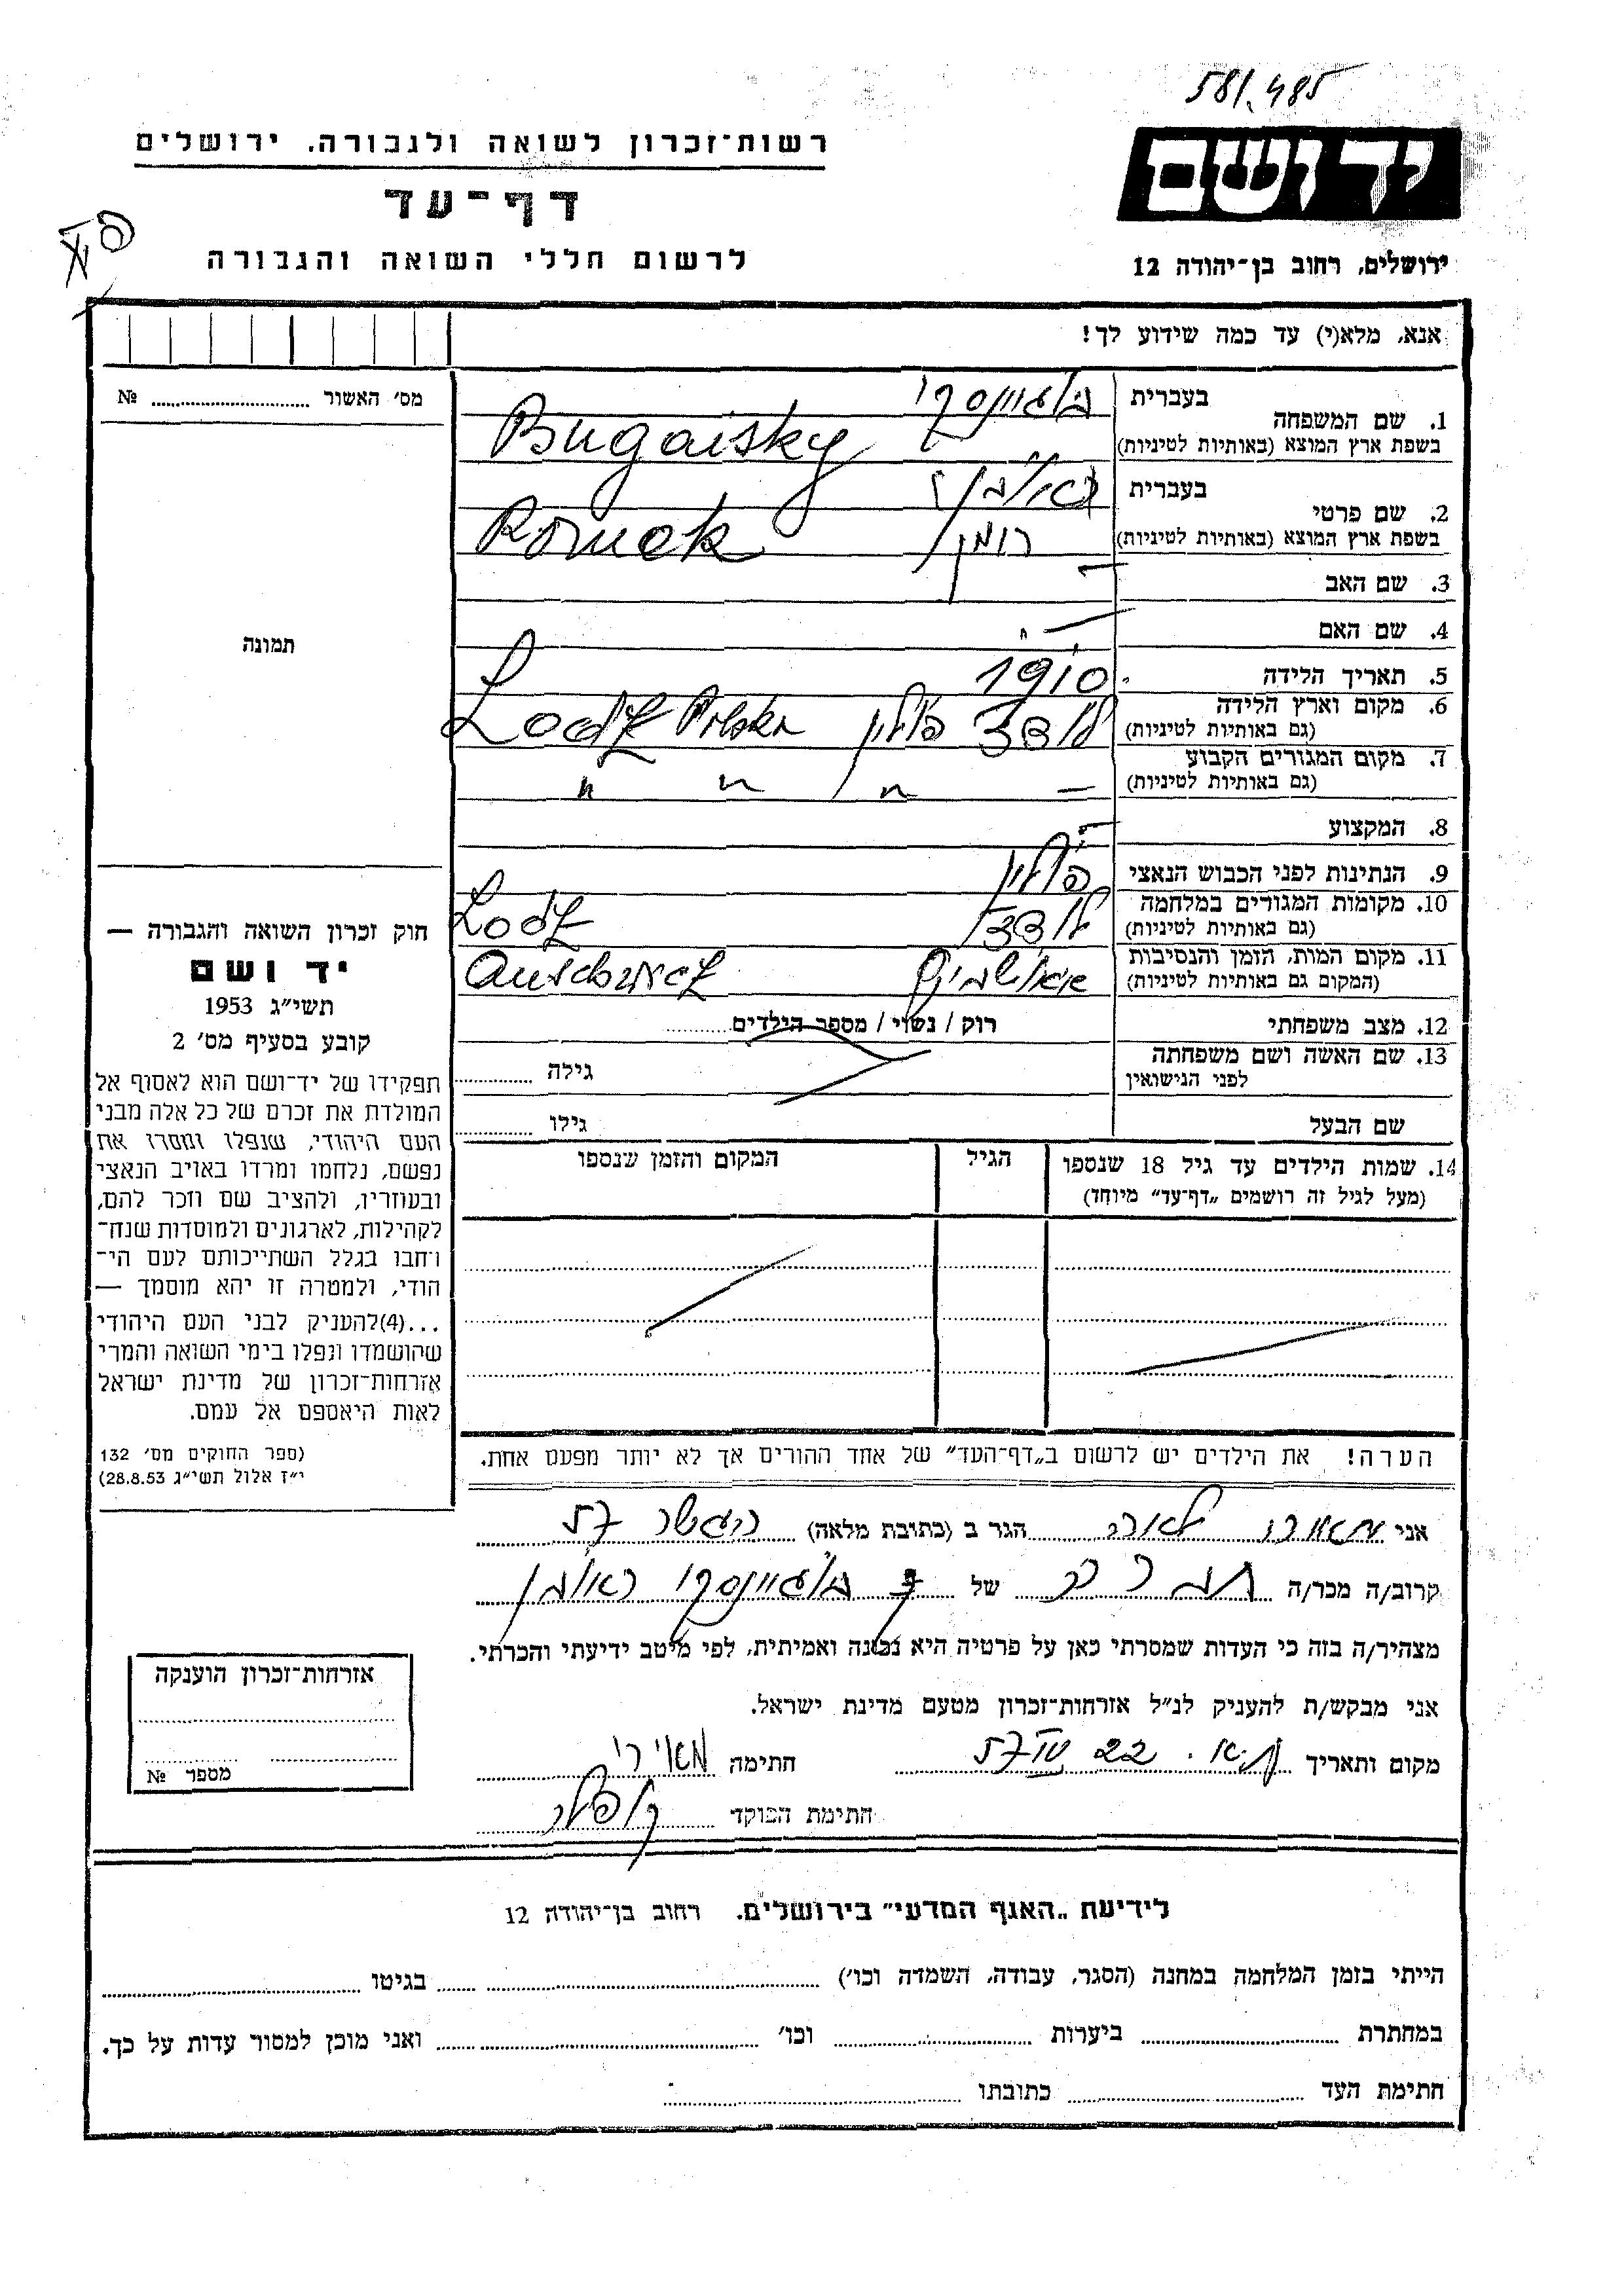 581.485
רשות־זכרון לשואה ולגבורה. ירושלים
יד ושם
דף־עד
לרשום חללי השואה והגבורה
ירושלים, רחוב בן־יהודה 12
אנא, מלא(י) עד כמה שידוע לך!
מס׳ האשור № 
1. שם המשפחה בעברית בוגייסקי
בשפת ארץ המוצא (באותיות לטיניות) Bugaisky
2. שם פרטי בעברית
בשפת ארץ המוצא (באותיות לטיניות) רומן Romek
3. שם האב –
4. שם האם –
תמונה
5. תאריך הלידה 1910
6. מקום וארץ הלידה
(גם באותיות לטיניות) לודז פולין Lodz Polska
7. מקום המגורים הקבוע
(גם באותיות לטיניות) – " " "
8. המקצוע –
9. הנתינות לפני הכבוש הנאצי פולין
10. מקומות המגורים במלחמה
(גם באותיות לטיניות) לודז Lodz
11. מקום המות, הזמן והנסיבות
(המקום גם באותיות לטיניות)
12. מצב משפחתי רוק / נשוי / מספר הילדים
13. שם האשה ושם משפחתה
לפני הנישואין גילה
שם הבעל גילו
14. שמות הילדים עד גיל 18 שנספו הגיל המקום והזמן שנספו
(מעל לגיל זה רושמים „דף־עד״ מיוחד)
חוק זכרון השואה והגבורה —
יד ושם
תשי״ג 1953
קובע בסעיף מס׳ 2
תפקידו של יד־ושם הוא לאסוף אל
המולדת את זכרם של כל אלה מבני
העם היהודי, שנפלו ומסרו את
נפשם, נלחמו ומרדו באויב הנאצי
ובעוזריו, ולהציב שם וזכר להם,
לקהילות, לארגונים ולמוסדות שנח־
רחבו בגלל השתייכותם לעם הי־
הודי, ולמטרה זו יהא מוסמך —
...(4)להעניק לבני העם היהודי
שהושמדו ונפלו בימי השואה והמרי
אזרחות־זכרון של מדינת ישראל
לאות היאספם אל עמם.
(ספר החוקים מס׳ 132
י״ז אלול תשי״ג 28.8.53)
הערה! את הילדים יש לרשום ב„דף־העד״ של אחד ההורים אך לא יותר מפעם אחת.
אני הגר ב (כתובת מלאה)
קרוב/ה מכר/ה של בוגייסקי
מצהיר/ה בזה כי העדות שמסרתי כאן על פרטיה היא נכונה ואמיתית, לפי מיטב ידיעתי והכרתי.
אני מבקש/ת להעניק לנ״ל אזרחות־זכרון מטעם מדינת ישראל.
מקום ותאריך ת״א. 22 חתימה מאירי
חתימת הפוקד
אזרחות־זכרון הוענקה
מספר №
לידיעת „האגף המדעי״ בירושלים. רחוב בן־יהודה 12
הייתי בזמן המלחמה במחנה (הסגר, עבודה, השמדה וכו׳) בגיטו
במחתרת ביערות וכו׳ ואני מוכן למסור עדות על כך.
חתימת העד כתובתו